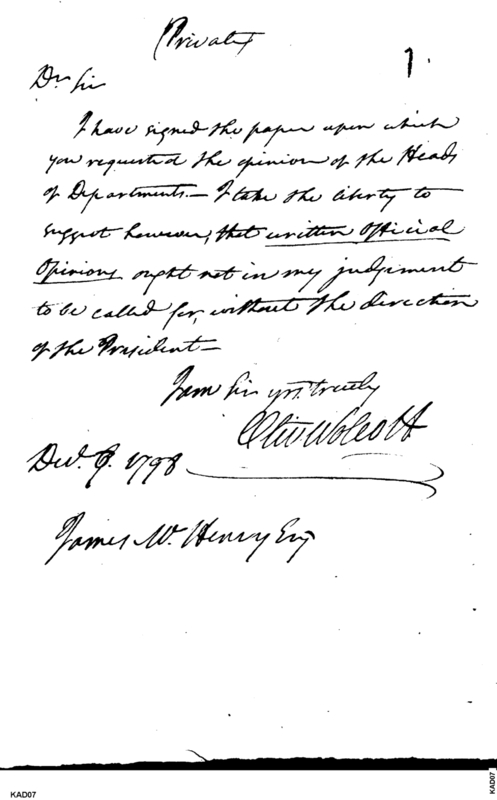 (Private)
1.
Dr Sir
I have signed the paper upon which
you requested the opinion of the Heads
of Departments.— I take the liberty to
suggest however, that written official
Opinions ought not in my judgment
to be called for, without the direction
of the President—
I am Sir yrs. truely
Oliv Wolcott
Dec. 9. 1798
James Mc. Henry Esq
KAD07
KAD07